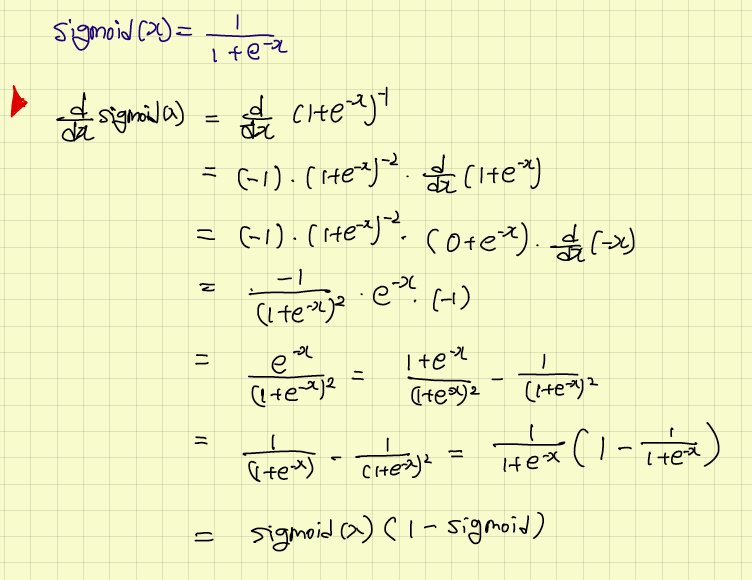 sigmoid(x) = 1/(1+e^-x)
d/dx sigmoid(x) = d/dx (1+e^-x)^-1
= (-1)·(1+e^-x)^-2 · d/dx (1+e^-x)
= (-1)·(1+e^-x)^-2 · (0+e^-x) · d/dx (-x)
= -1/(1+e^-x)^2 · e^-x · (-1)
= e^-x/(1+e^-x)^2 = (1+e^-x)/(1+e^-x)^2 - 1/(1+e^-x)^2
= 1/(1+e^-x) - 1/(1+e^-x)^2 = 1/(1+e^-x) (1 - 1/(1+e^-x))
= sigmoid(x) (1 - sigmoid)